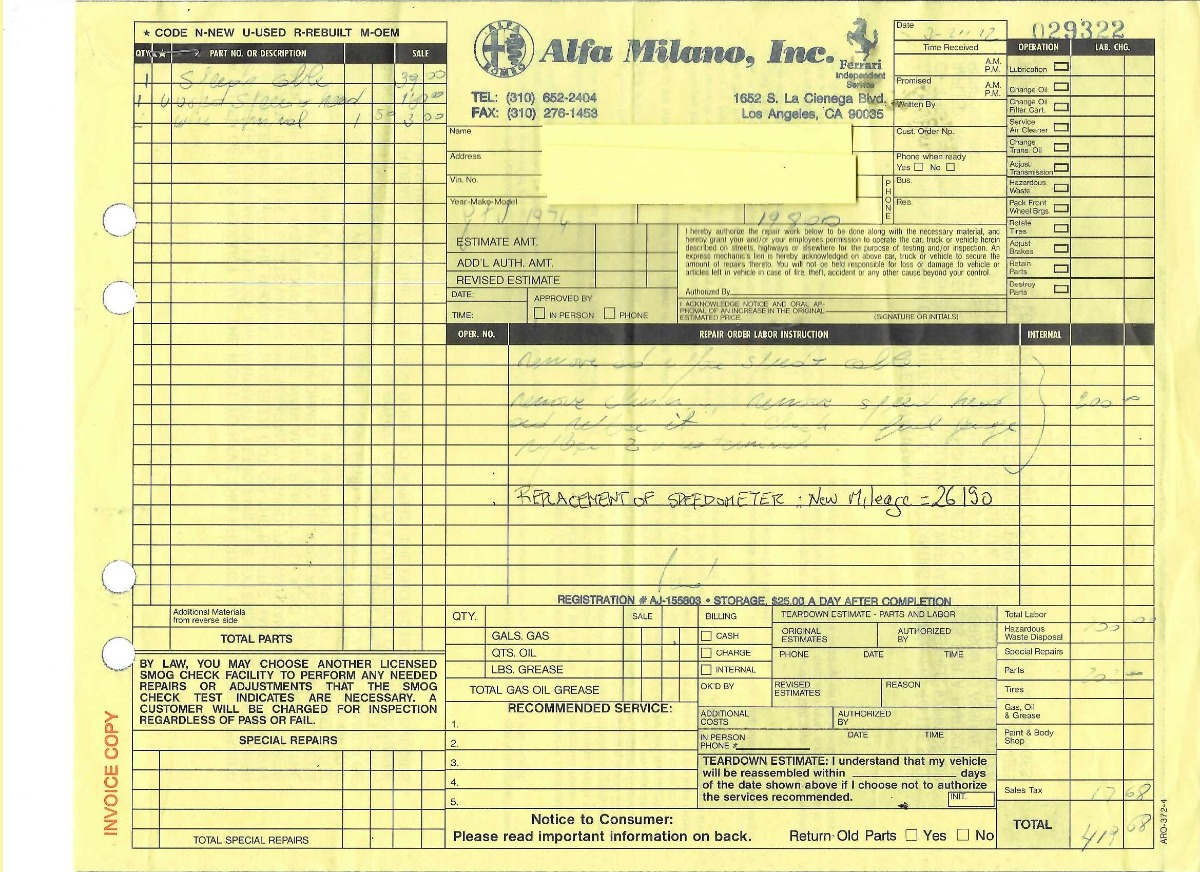 ★ CODE N-NEW U-USED R-REBUILT M-OEM
QTY. ★ PART NO. OR DESCRIPTION SALE
1 cable 39 00
1 160 00
1 50 3 00
ALFA ROMEO
Alfa Milano, Inc.
Ferrari
Independent
Service
TEL: (310) 652-2404
FAX: (310) 276-1453
1652 S. La Cienega Blvd.
Los Angeles, CA 90035
Name
Address
Vin. No.
Year-Make-Model
1976
19800
Date
Time Received
A.M.
P.M.
Promised
A.M.
P.M.
Written By
Cust. Order No.
Phone when ready
Yes No
PHONE
Bus.
Res.
029322
OPERATION LAB. CHG.
Lubrication
Change Oil
Change Oil
Filter Cart.
Service
Air Cleaner
Change
Trans. Oil
Adjust
Transmission
Hazardous
Waste
Pack Front
Wheel Brgs.
Rotate
Tires
Adjust
Brakes
Retain
Parts
Destroy
Parts
ESTIMATE AMT.
ADD'L AUTH. AMT.
REVISED ESTIMATE
DATE:
TIME:
APPROVED BY
IN PERSON PHONE
I hereby authorize the repair work below to be done along with the necessary material, and
hereby grant your and/or your employees permission to operate the car, truck or vehicle herein
described on streets, highways or elsewhere for the purpose of testing and/or inspection. An
express mechanic's lien is hereby acknowledged on above car, truck or vehicle to secure the
amount of repairs thereto. You will not be held responsible for loss or damage to vehicle or
articles left in vehicle in case of fire, theft, accident or any other cause beyond your control.
Authorized By
I ACKNOWLEDGE NOTICE AND ORAL AP-
PROVAL OF AN INCREASE IN THE ORIGINAL
ESTIMATED PRICE.
(SIGNATURE OR INITIALS)
OPER. NO. REPAIR ORDER LABOR INSTRUCTION INTERNAL
remove cable
remove remove speed head
it fuel gauge
200 00
REPLACEMENT OF SPEEDOMETER : New Mileage = 26190
REGISTRATION # AJ-155603 • STORAGE, $25.00 A DAY AFTER COMPLETION
Additional Materials
from reverse side
TOTAL PARTS
BY LAW, YOU MAY CHOOSE ANOTHER LICENSED
SMOG CHECK FACILITY TO PERFORM ANY NEEDED
REPAIRS OR ADJUSTMENTS THAT THE SMOG
CHECK TEST INDICATES ARE NECESSARY. A
CUSTOMER WILL BE CHARGED FOR INSPECTION
REGARDLESS OF PASS OR FAIL.
SPECIAL REPAIRS
TOTAL SPECIAL REPAIRS
INVOICE COPY
QTY. SALE
GALS. GAS
QTS. OIL
LBS. GREASE
TOTAL GAS OIL GREASE
RECOMMENDED SERVICE:
1.
2.
3.
4.
5.
BILLING
CASH
CHARGE
INTERNAL
OK'D BY
TEARDOWN ESTIMATE - PARTS AND LABOR
ORIGINAL
ESTIMATES
AUTHORIZED
BY
PHONE DATE TIME
REVISED
ESTIMATES
REASON
ADDITIONAL
COSTS
AUTHORIZED
BY
IN PERSON
PHONE #
DATE TIME
TEARDOWN ESTIMATE: I understand that my vehicle
will be reassembled within days
of the date shown above if I choose not to authorize
the services recommended.
INIT.
Notice to Consumer:
Please read important information on back.
Return Old Parts Yes No
Total Labor
Hazardous
Waste Disposal
Special Repairs
Parts 202 00
Tires
Gas, Oil
& Grease
Paint & Body
Shop
Sales Tax 17 68
TOTAL 419 68
ARO-372-4